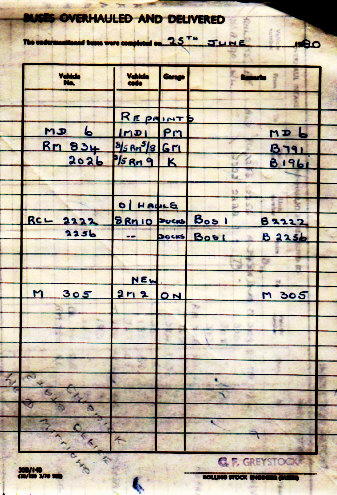 BUSES OVERHAULED AND DELIVERED
The undermentioned buses were completed on 25TH JUNE 1980
Vehicle No. Vehicle code Garage Remarks
REPAINTS
MD 6 1MD1 PM MD 6
RM 834 GM B791
2026 3/5RM9 K B1961
O/HAULS
RCL 2222 8RM10 DOCKS BOS1 B2222
2256 -- DOCKS BOS1 B2256
NEW
M 305 2M2 ON M 305
G. F. GREYSTOCK
ROLLING STOCK ENGINEER (BUSES)